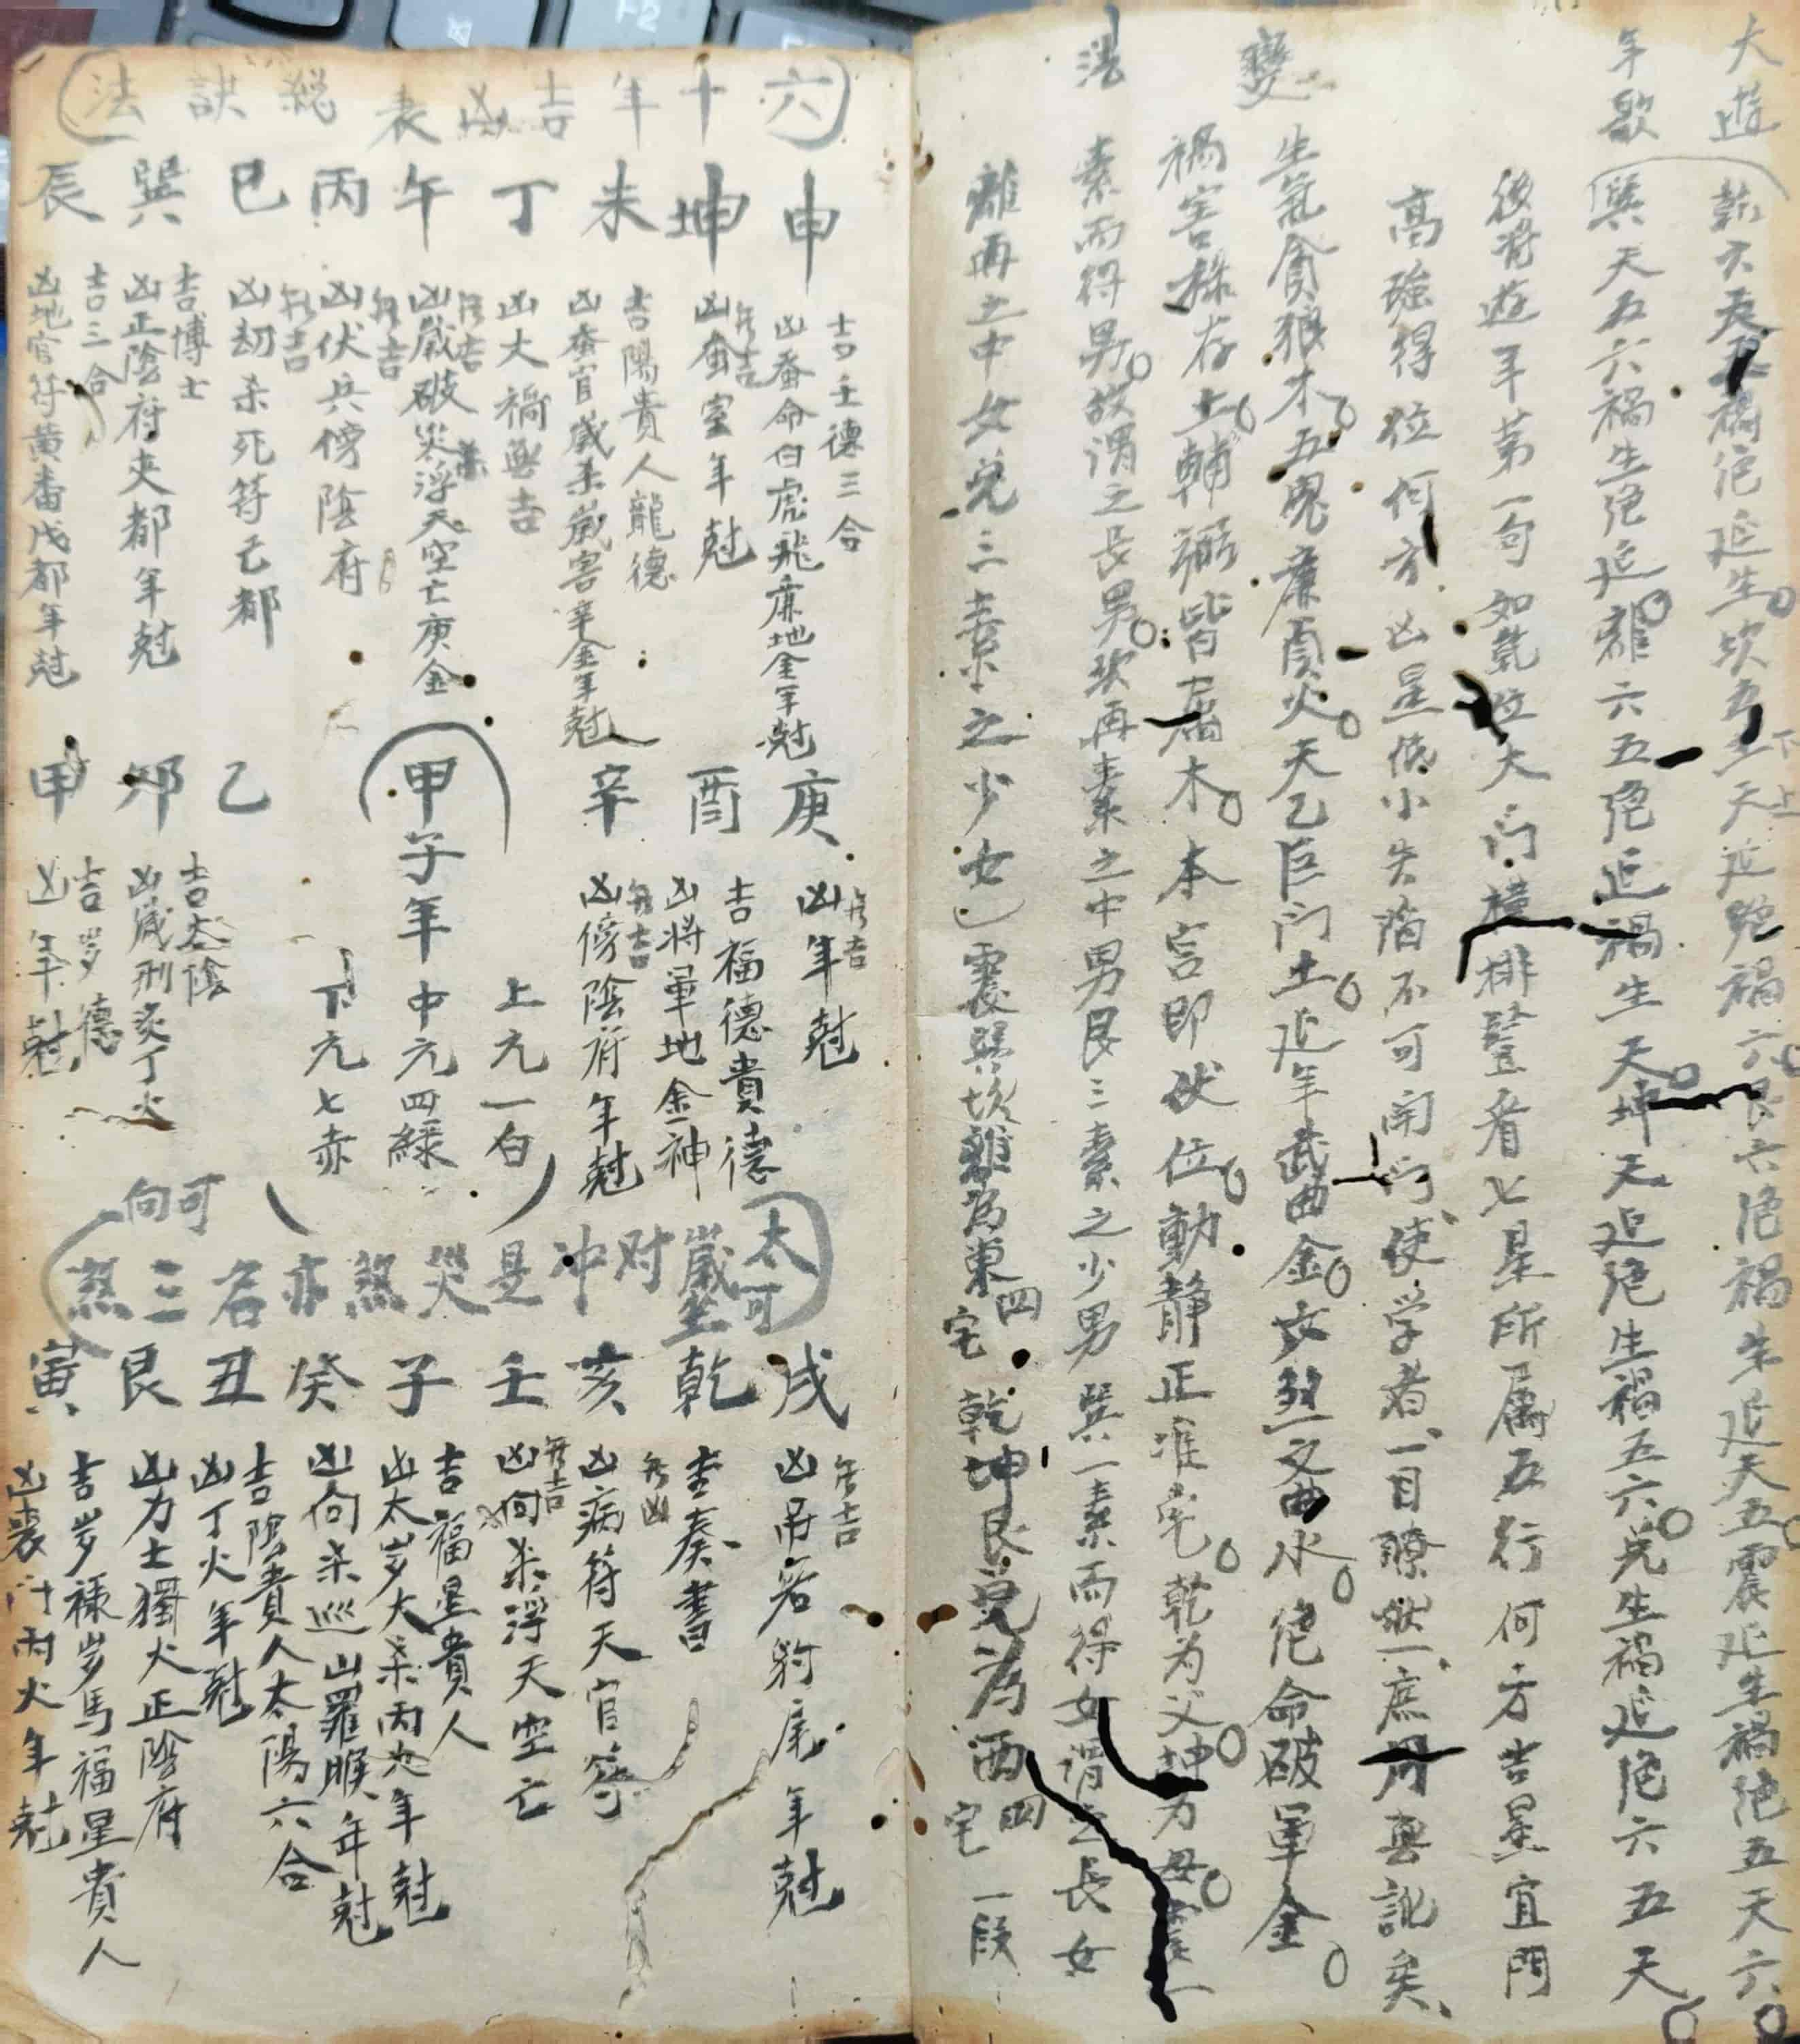 大遊
年歌
變
法
乾六天五禍绝延生坎五天生延绝禍六艮六绝禍生延天五震延生禍绝五天六
巽天五六禍生绝延離六五绝延禍生天坤天延绝生禍五六兑生禍延绝六五天
後将遊年第一句如乾位大门横排竪看七星所属五行何方吉星宜門
高強得位何方凶星低小失陷不可開门使学者一目瞭然一庶毋舆訛矣
生氣貪狼木五鬼廉貞火天乙巨门土延年武曲金文煞文曲水绝命破軍金
禍害禄存土輔弼皆属木本宫即伏位動静正准宅乾为父坤为母震一
素而得男故谓之長男坎再素之中男艮三素之少男巽一素而得女谓之長女
離再之中女兑三素之少女震巽坎離為東四宅乾坤艮兑為西四宅一段
六十年吉凶表總訣法
申坤未丁午丙巳巽辰
吉壬德三合
凶蚕命白虎飛廉地金年尅
無吉
凶蚕室年尅
吉陽貴人龍德
凶蚕官歲杀歲害辛金年尅
凶大禍無吉
無吉
凶歲破災杀浮天空亡庚金
無吉
凶伏兵傍陰府
無吉
凶刼杀死符毛都
吉博士
凶正陰府夹都年尅
吉三合
凶地官符黄番戊都年尅
庚酉辛
無吉
凶年尅
吉福德貴德
凶将軍地金神
無吉
凶傍陰府年尅
甲子年
上元一白
中元四緑
下元七赤
乙卯甲
吉太陰
凶歲刑炙丁火
吉岁德
凶年尅
太歲对冲是災煞亦名三煞
可坐
可向
戌乾亥壬子癸丑艮寅
無吉
凶吊客豹尾年尅
吉奏書
無凶
凶病符天官符
無吉
凶向杀浮天空亡
吉福星貴人
凶太岁大杀丙火年尅
凶向杀巡山羅睺年尅
吉陰貴人太陽六合
凶丁火年尅
凶力士獨火正陰府
吉岁禄岁馬福星貴人
凶喪门丙火年尅